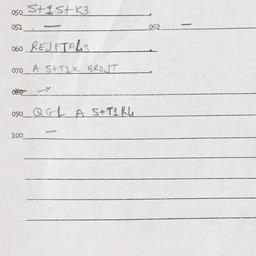 050 S+1S+K3
051 — 052 —
060 REJFTAL3
070 A S+T1K BRDJT
080
090 QGL A S+T1KL
100 —